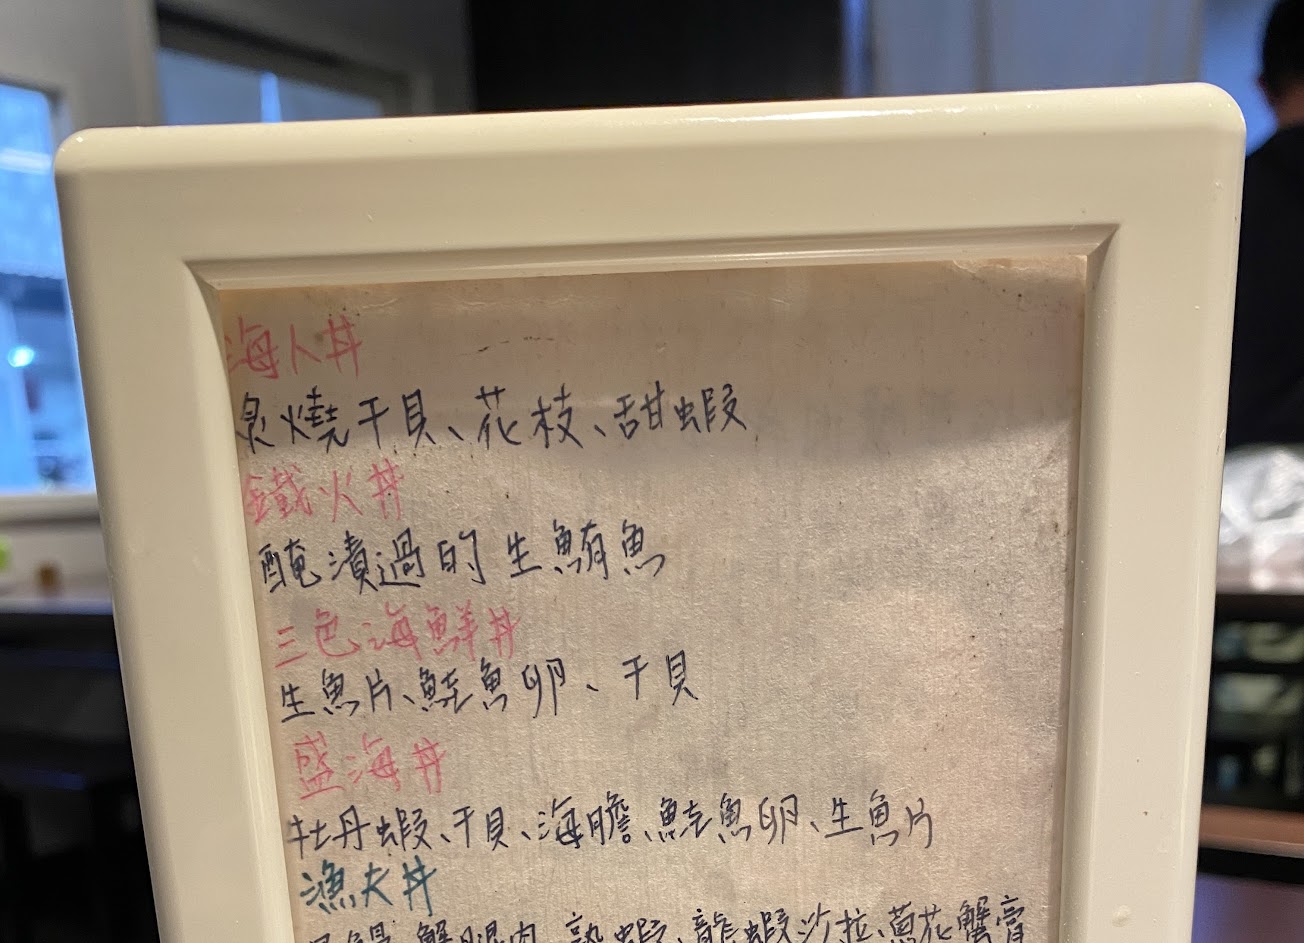 海人丼
炙燒干貝、花枝、甜蝦
鐵火丼
醃漬過的生鮪魚
三色海鮮丼
生魚片、鮭魚卵、干貝
盛海丼
牡丹蝦、干貝、海膽、鮭魚卵、生魚片
漁夫丼
蟹腿肉、熟蝦、龍蝦沙拉、蔥花蟹膏